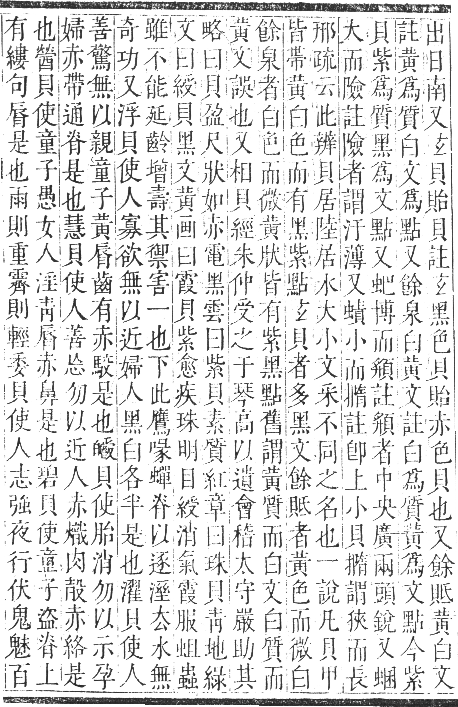 出日南又玄貝貽貝註玄黑色貝貽赤色貝也又餘貾黃白文
註黃爲質白文爲點又餘泉白黃文註白爲質黃爲文點今紫
貝紫爲質黑爲文點又蚆博而頯註頯者中央廣兩頭銳又蜠
大而險註險者謂汙薄又蟦小而橢註卽上小貝橢謂狹而長
邢疏云此辨貝居陸居水大小文采不同之名也一說凡貝甲
皆帶黃白色而有黑紫點玄貝者多黑文餘貾者黃色而微白
餘泉者白色而微黃狀皆有紫黑點舊謂黃質而白文白質而
黃文誤也又相貝經朱仲受之于琴高以遺會稽太守嚴助其
略曰貝盈尺狀如赤電黑雲曰紫貝素質紅章曰珠貝靑地綠
文曰綬貝黑文黃画曰霞貝紫愈疾珠明目綬消氣霞服蛆蟲
雖不能延齡增壽其禦害一也下此鷹喙蟬脊以逐溼去水無
奇功又浮貝使人寡欲無以近婦人黑白各半是也濯貝使人
善驚無以親童子黃脣齒有赤駮是也皭貝使胎消勿以示孕
婦赤帶通脊是也慧貝使人善忘勿以近人赤熾肉殼赤絡是
也醟貝使童子愚女人淫靑脣赤鼻是也碧貝使童子盜脊上
有縷句脣是也雨則重霽則輕委貝使人志強夜行伏鬼魅百